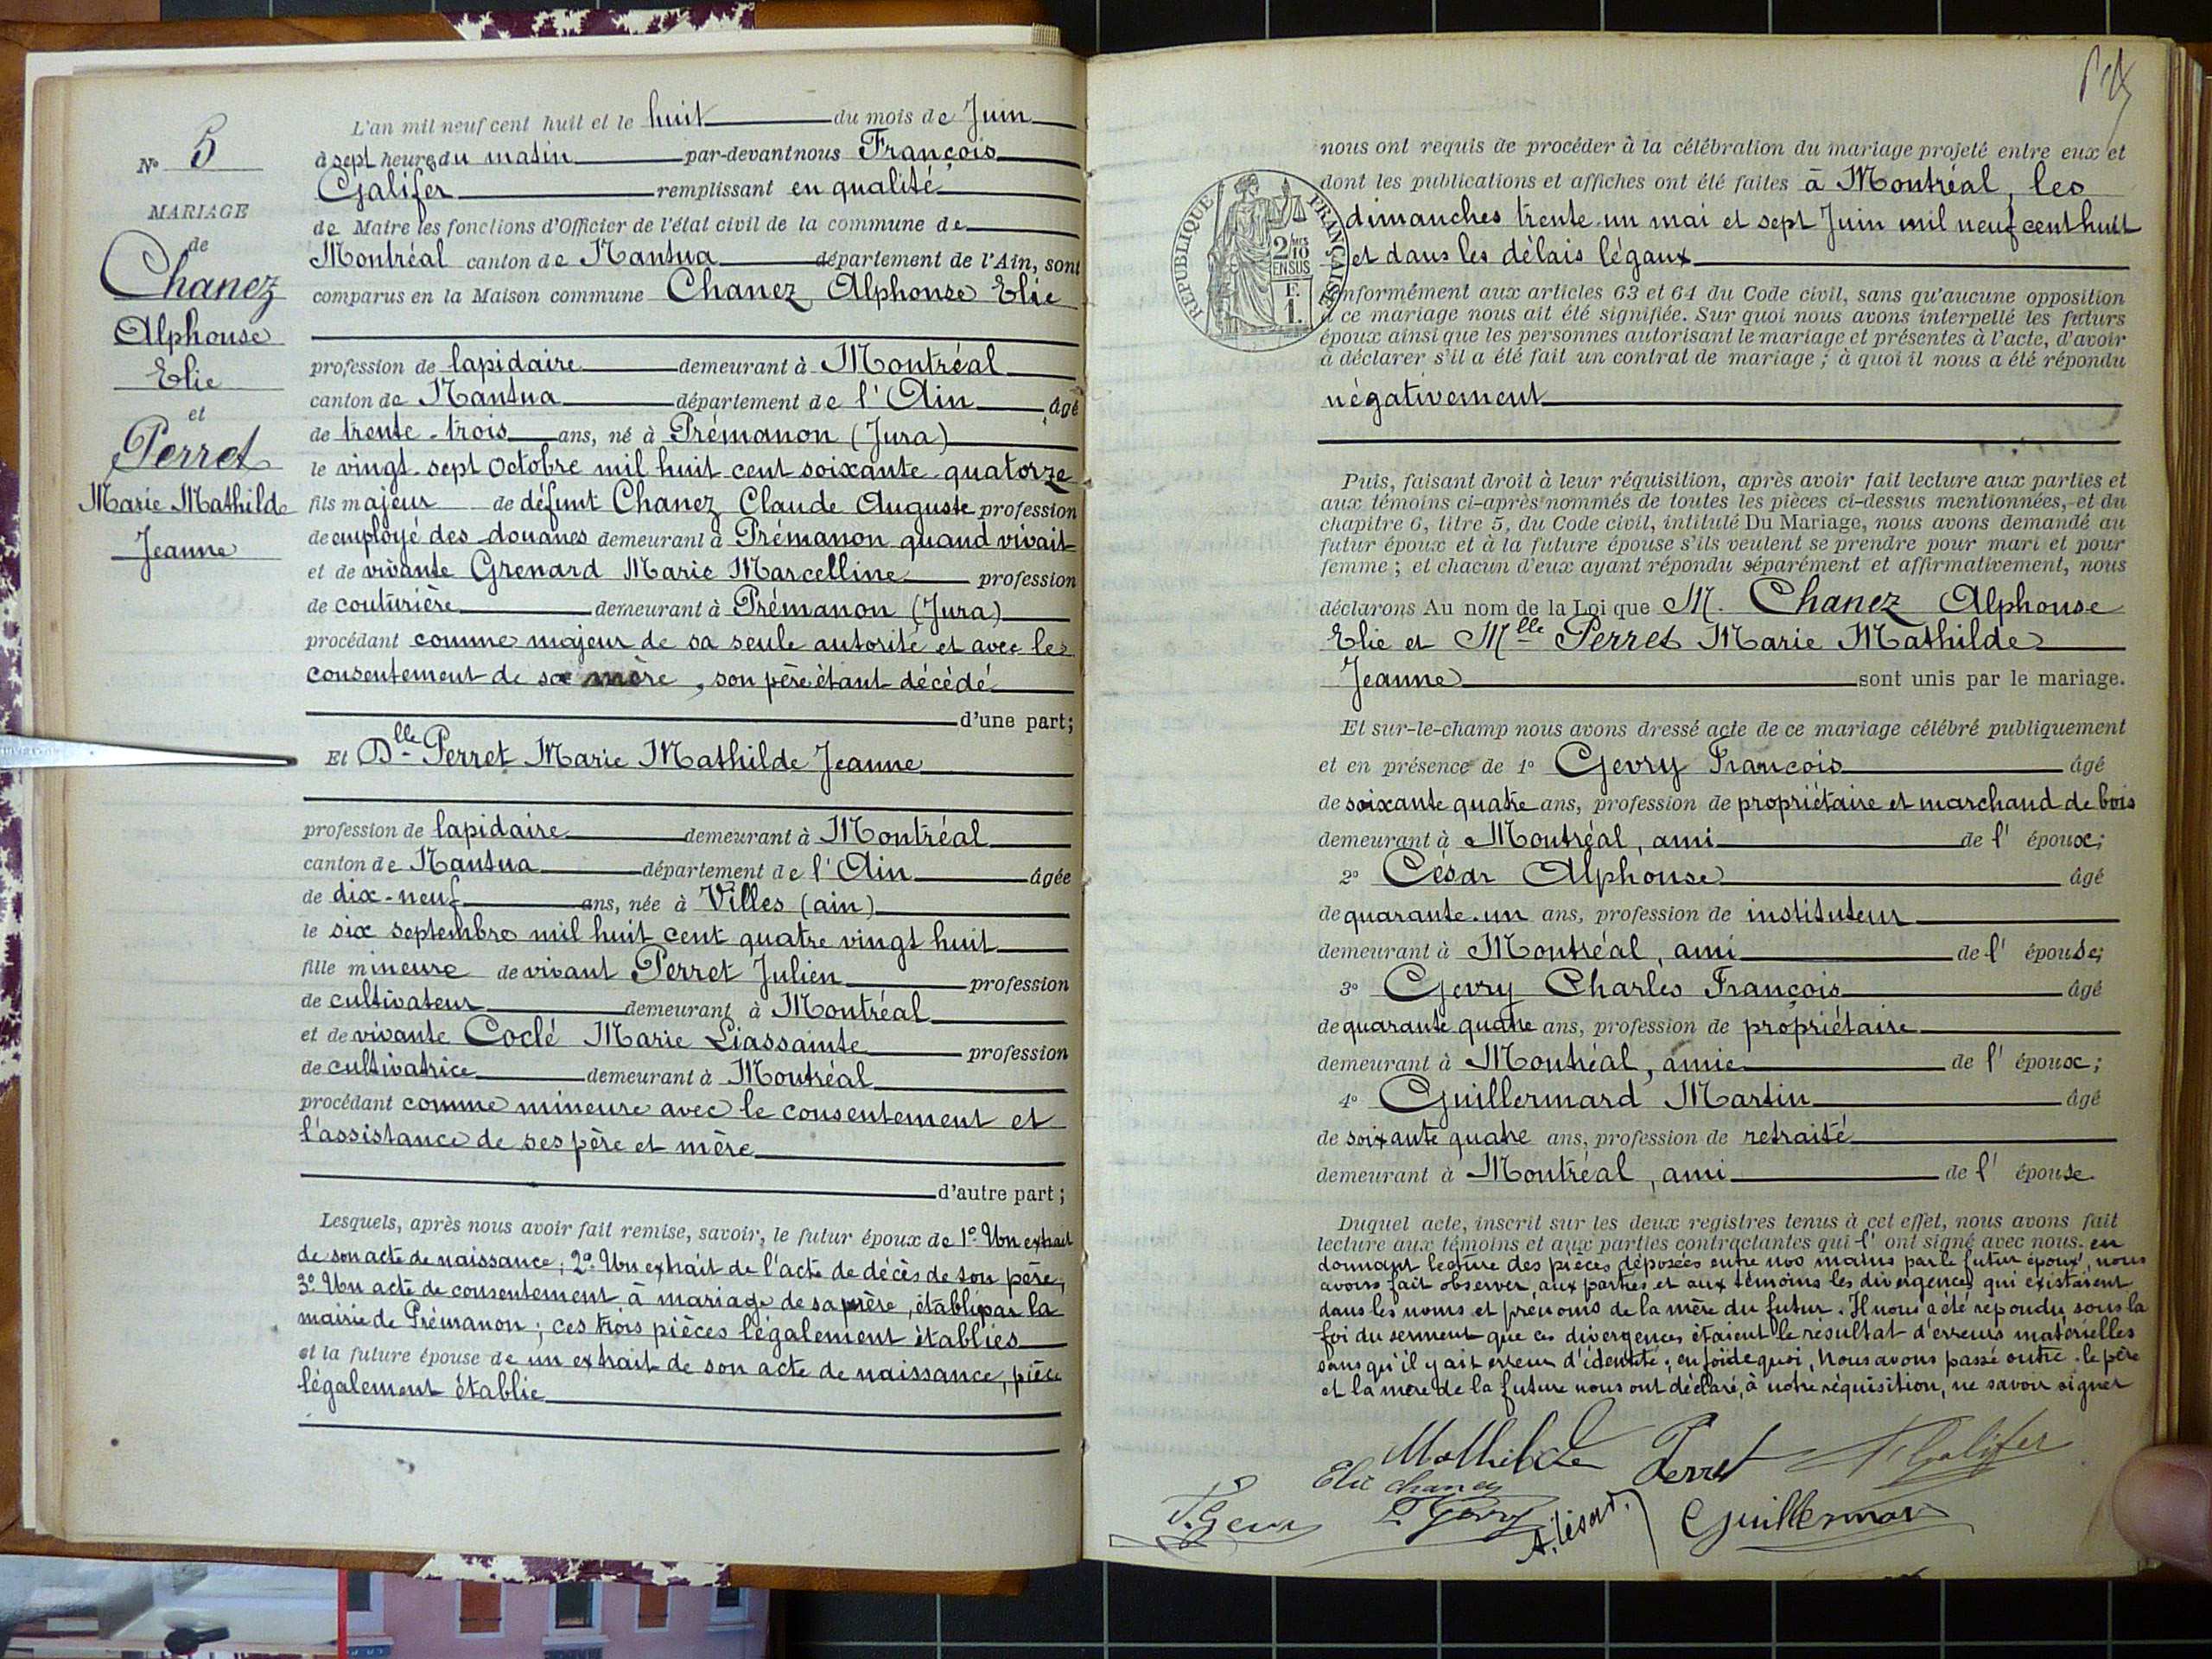 N° 5
MARIAGE
de
Chanez
Alphonse
Elie
et
Perret
Marie Mathilde
Jeanne
L'an mil neuf cent huit et le huit du mois de Juin
à sept heures du matin par-devant nous François
Galifer remplissant en qualité
de Maire les fonctions d'Officier de l'état civil de la commune de
Montréal canton de Nantua département de l'Ain, sont
comparus en la Maison commune Chanez Alphonse Elie
profession de lapidaire demeurant à Montréal
canton de Nantua département de l'Ain âgé
de trente-trois ans, né à Prémanon (Jura)
le vingt-sept Octobre mil huit cent soixante-quatorze
fils majeur de défunt Chanez Claude Auguste profession
de employé des douanes demeurant à Prémanon quand vivait
et de vivante Grenard Marie Marcelline profession
de couturière demeurant à Prémanon (Jura)
procédant comme majeur de sa seule autorité et avec le
consentement de sa mère, son père étant décédé
d'une part;
Et Dlle Perret Marie Mathilde Jeanne
profession de lapidaire demeurant à Montréal
canton de Nantua département de l'Ain âgée
de dix-neuf ans, née à Villes (ain)
le six septembre mil huit cent quatre vingt huit
fille mineure de vivant Perret Julien profession
de cultivateur demeurant à Montréal
et de vivante Coclé Marie Liassainte profession
de cultivatrice demeurant à Montréal
procédant comme mineure avec le consentement et
l'assistance de ses père et mère
d'autre part;
Lesquels, après nous avoir fait remise, savoir, le futur époux de 1° Un extrait
de son acte de naissance; 2° Un extrait de l'acte de décès de son père;
3° Un acte de consentement à mariage de sa mère, établi par la
mairie de Prémanon; ces trois pièces légalement établies
et la future épouse de un extrait de son acte de naissance, pièce
légalement établie
nous ont requis de procéder à la célébration du mariage projeté entre eux et
dont les publications et affiches ont été faites à Montréal, les
dimanches trente-un mai et sept Juin mil neuf cent huit
et dans les délais légaux
RÉPUBLIQUE FRANÇAISE
2/10 EN SUS
F. 1.
conformément aux articles 63 et 64 du Code civil, sans qu'aucune opposition
à ce mariage nous ait été signifiée. Sur quoi nous avons interpellé les futurs
époux ainsi que les personnes autorisant le mariage et présentes à l'acte, d'avoir
à déclarer s'il a été fait un contrat de mariage; à quoi il nous a été répondu
négativement
Puis, faisant droit à leur réquisition, après avoir fait lecture aux parties et
aux témoins ci-après nommés de toutes les pièces ci-dessus mentionnées, et du
chapitre 6, titre 5, du Code civil, intitulé Du Mariage, nous avons demandé au
futur époux et à la future épouse s'ils veulent se prendre pour mari et pour
femme; et chacun d'eux ayant répondu séparément et affirmativement, nous
déclarons Au nom de la Loi que M. Chanez Alphonse
Elie et Mlle Perret Marie Mathilde
Jeanne sont unis par le mariage.
Et sur-le-champ nous avons dressé acte de ce mariage célébré publiquement
et en présence de 1° Gevry François âgé
de soixante quatre ans, profession de propriétaire et marchand de bois
demeurant à Montréal, ami de l'époux;
2° César Alphonse âgé
de quarante-un ans, profession de instituteur
demeurant à Montréal, ami de l'épouse;
3° Gevry Charles François âgé
de quarante quatre ans, profession de propriétaire
demeurant à Montréal, amie de l'époux;
4° Guillermard Martin âgé
de soixante quatre ans, profession de retraité
demeurant à Montréal, ami de l'épouse
Duquel acte, inscrit sur les deux registres tenus à cet effet, nous avons fait
lecture aux témoins et aux parties contractantes qui l'ont signé avec nous. en
donnant lecture des pièces déposées entre nos mains par le futur époux, nous
avons fait observer, aux parties et aux témoins les divergences qui existaient
dans les noms et prénoms de la mère du futur. Il nous a été répondu sous la
foi du serment que ces divergences étaient le résultat d'erreurs matérielles
sans qu'il y ait erreur d'identité; en foi de quoi, Nous avons passé outre. le père
et la mère de la future nous ont déclaré, à notre réquisition, ne savoir signer
Mathilde Perret F Galifer
Elie Chanez
F. Gevry A. César Guillermard